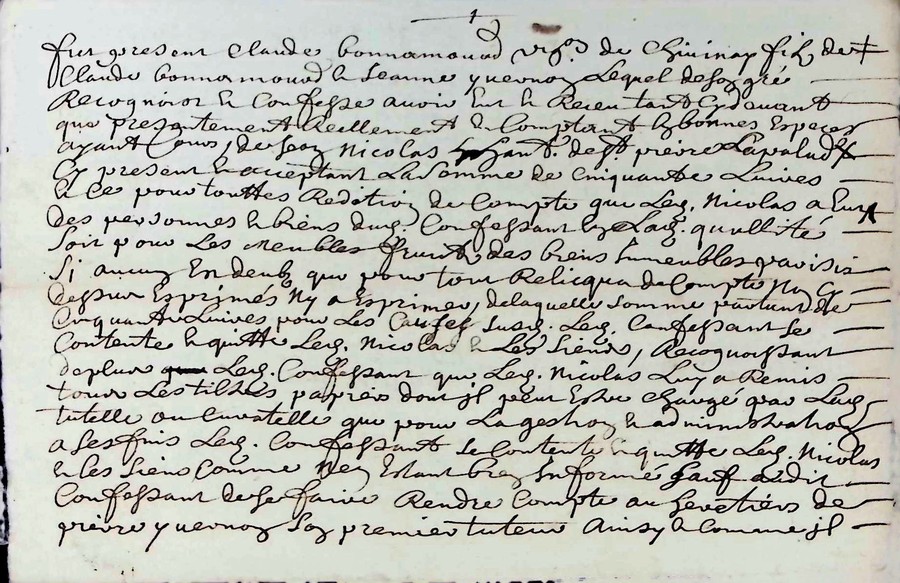 1
fut present claude bonnamoud vig.on de Chivinay filz de +
Claude bonnamoud & Jeanne yvernay Lequel de son gré
Recognoist & Confesse avoir Eut & Receu tant Cy devant
que presentement Reellement & Comptant En bonnes Especes
ayant Cours, de Nicolas de St. pierre Lapalud
Cy present & acceptant La Somme de Cinquante Livres
& Ce pour touttes Redition de Compte que Led. Nicolas a Eut
des personnes & biens dud. Confessant En Lad. quallité
Soit pour Les meubles fruits des biens Immeubles
Si aucun En deub que pour tout Relicqua de Compte Non Cy
dessus Exprimés Ny a Exprimer, de laquelle Somme partant de
Cinquante Livres pour Les Causes Susd. Led. Confessant Se
Contente & quitte Led. Nicolas & Les Siens, Recognoissant
de plus Led. Confessant que Led. Nicolas Luy a Remis
tous Les tiltres, papiers dont il peut Estre Chargé par Lad.
tutelle ou Curatelle que pour La gestion & administration
a Ses fins Led. Confessant Se Contente & quitte Led. Nicolas
& les Siens Comme Estant bien Informé Sauf audit
Confessant de Se faire Rendre Compte au heretiers de
pierre yvernay Son premier tuteur Ainsy & Comme il